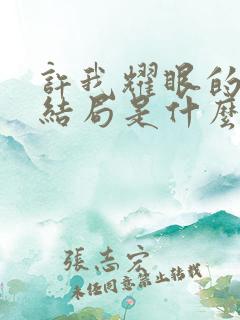 許我耀眼的
結局是什麼
張志宏
未經同意禁止轉載